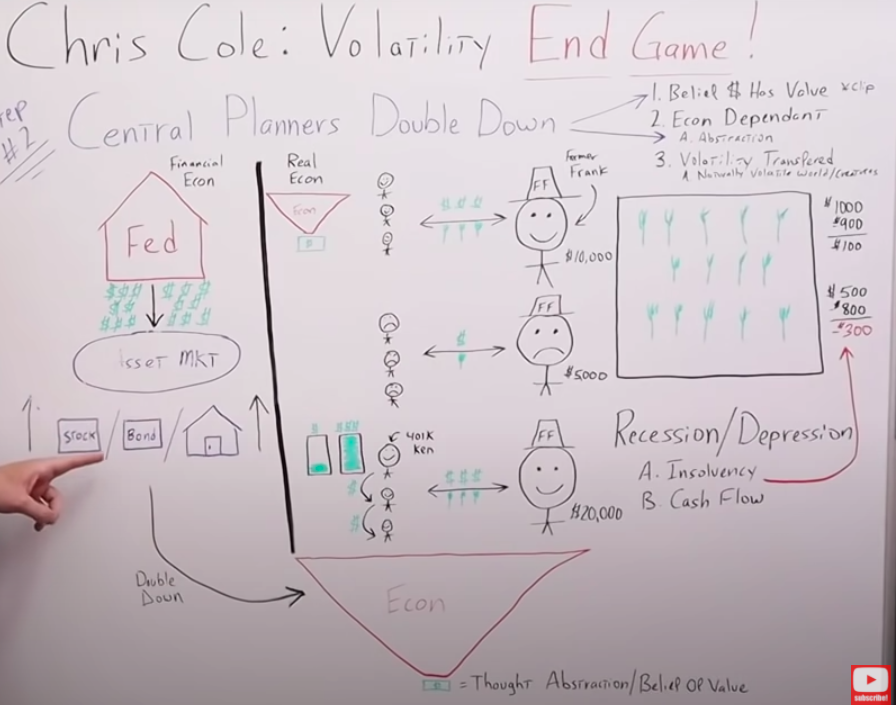 Chris Cole: Volatility End Game!
#2
Central Planners Double Down
1. Belief $ Has Value *clip
2. Econ Dependant
A. Abstraction
3. Volatility Transfered
A Naturally Volatile World/Creatures
Financial
Econ
Fed
$$$ $$$
$$ $$
$$$ $$$
Asset MKT
Stock / Bond /
Double
Down
Real
Econ
Econ
$
$ $ $
Former
Frank
FF
$10,000
$
FF
$5,000
$
$$$
401K
Ken
$
$
$ $ $
FF
$20,000
$1000
$900
$100
$500
$800
-$300
Recession/Depression
A. Insolvency
B. Cash Flow
Econ
$ = Thought Abstraction/Belief Of Value
subscribe!